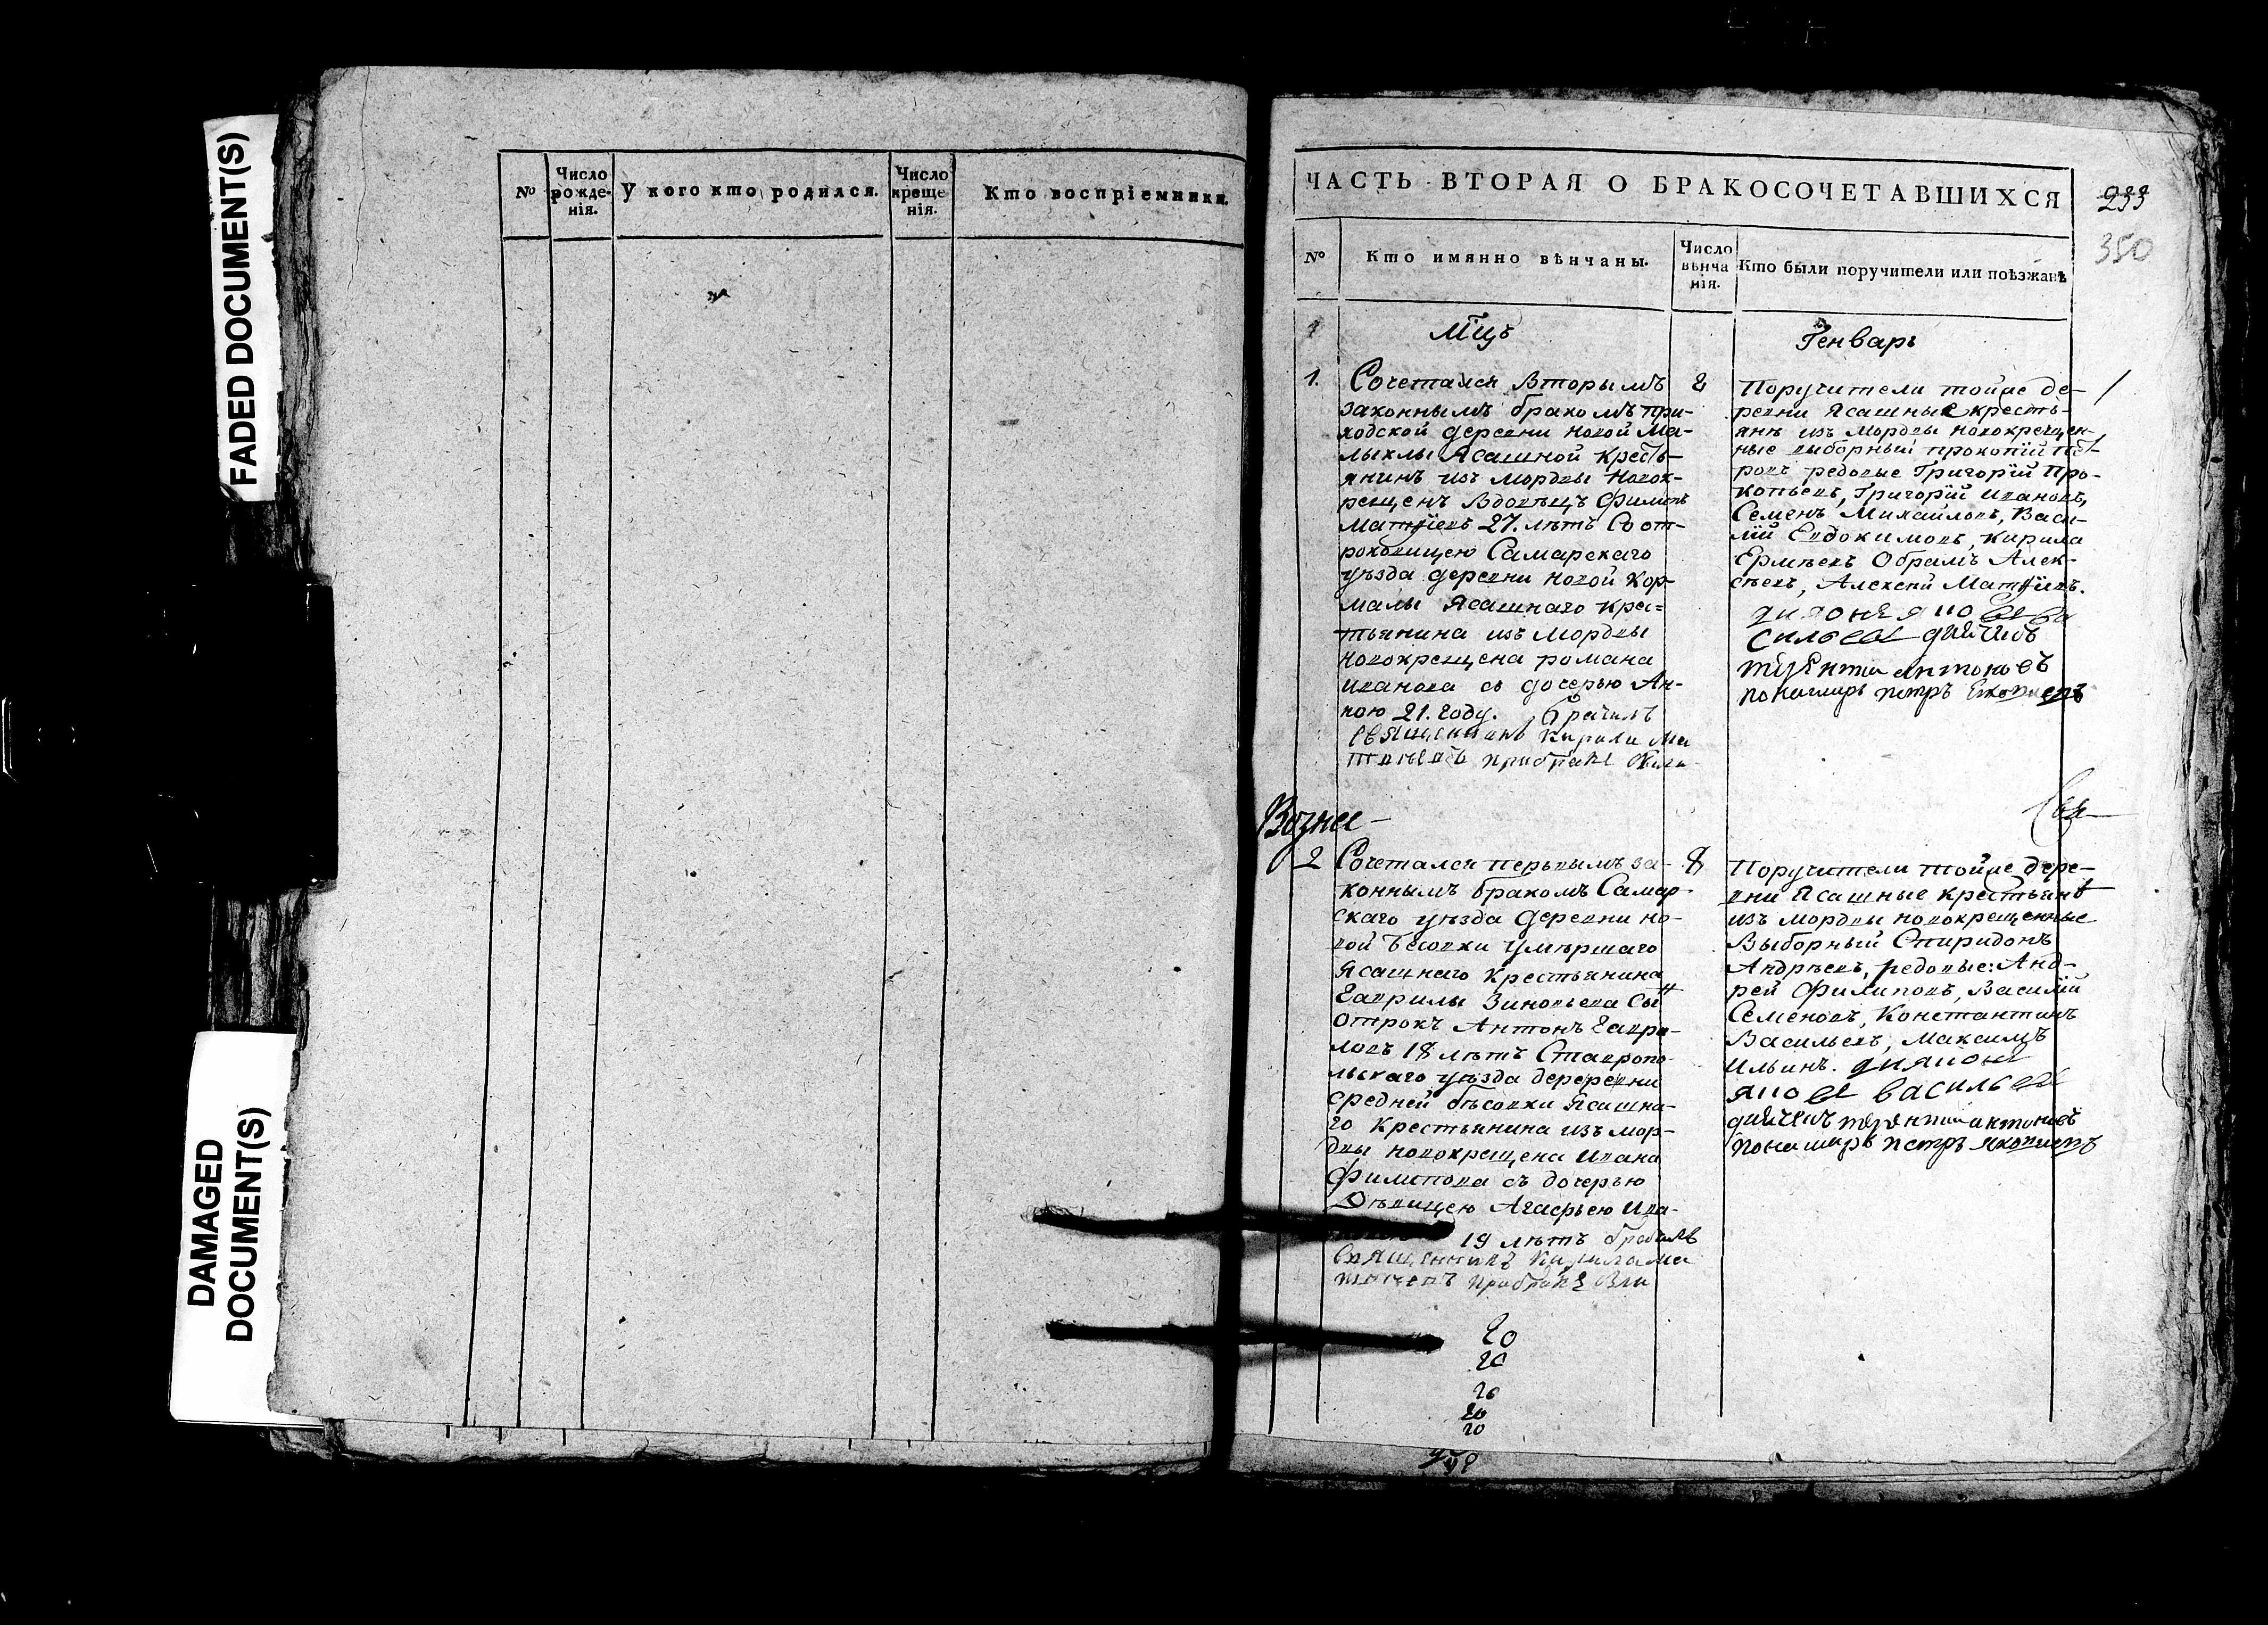 FADED DOCUMENT(S)
DAMAGED
DOCUMENT(S)
№
Число
рожде-
нія.
У кого кто родился.
Число
креще-
нія.
Кто воспріемники.
ЧАСТЬ ВТОРАЯ О БРАКОСОЧЕТАВШИХСЯ
233
350
№
Кто имянно вѣнчаны.
Число
вѣнча
нія.
Кто были поручители или поѣзжанѣ
Мцъ
Генварь
1.
Сочетался вторымъ
законнымъ бракомъ при-
ходской деревни новой Ма-
лыклы Ясашной крестъ-
янинъ изъ мордвы новок-
рещенъ вдовецъ Филипъ
Матѵіевъ 27. лѣтъ Со от-
роковицею Самарскаго
уѣзда деревни новой Кор-
малы Ясашнаго крес=
тьянина изъ мордвы
новокрещена романа
иванова съ дочерью Ан-
ною 21. году. Брачилъ
священникъ Кирила Ма
твѣевъ при браке были
8
Поручители тойже де-
ревни Ясашные кресть-
янѣ изъ мордвы новокрещен-
ные выборный прокопій пет-
ровъ редовые Григорій Про-
копьевъ, Григорій ивановъ,
Семенъ Михайловъ, Васи-
лій Евдокимовъ, кирила
Ермѣевъ Обрамъ Алек-
сѣевъ, Алексѣй Матѵіевъ.
сильевъ дьячекъ
терентий антоновъ
понамарь петръ
Вознес-
Свя
2
Сочетался первымъ за-
коннымъ бракомъ Самар-
скаго уѣзда деревни но-
вой Бесовки умершаго
Ясашнаго Крестьянина
Гаврилы Зиновьева Сынъ
отрокъ Антонъ Гаври-
ловъ 18 лѣтъ Ставропо-
льскаго уѣзда дереревни
средней бѣсовки Ясашна-
го крестьянина изъ мор-
двы новокрещена ивана
Филипова съ дочерью
Дѣвицею Агафьею ива-
19 лѣтъ брачилъ
священникъ Кирила ма
твѣевъ при браке были
8
Поручители тойже дере-
вни Ясашные крестьянѣ
изъ мордвы новокрещенные
Выборный Спиридонъ
Андрѣевъ, редовые: Анд-
рей Филиповъ, Василій
Семеновъ, Константинъ
Васильевъ, Максимъ
Ильинъ. диякон
яковъ васильевъ
дьячекъ терентий антоновъ
понамарь петръ яковлевъ
20
20
20
20
20